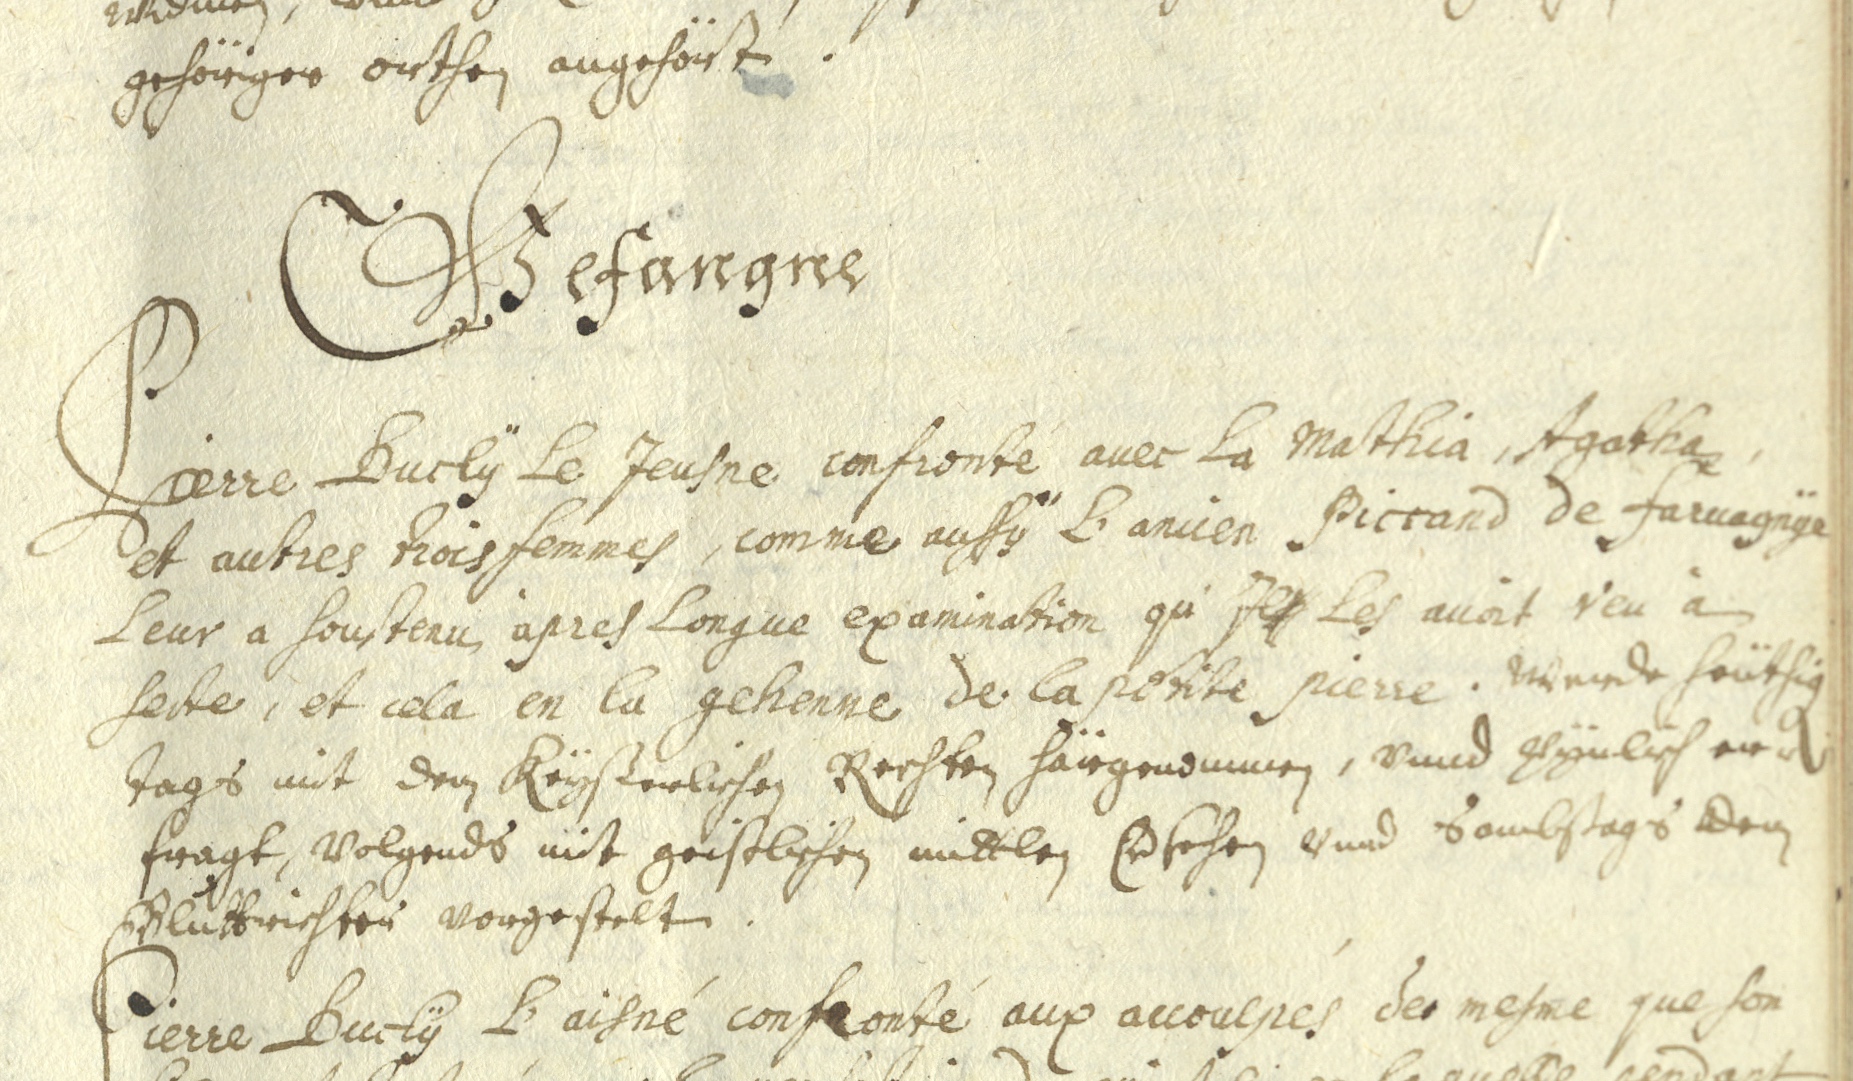 gehöriger orthen angehört.
Gefangne
Pierre Bucly le Jeusne confronté avec la Mathia, Agatha,
et autres trois femmes, comme aussy l'ancien Piccand de farvagnye
leur a soustenu apres longue examination qu'il les avoit veu à
secte, et cela en la gehenne de la petite pierre. Werde heüthig
tags mit dem Keysserlichen Rechten hargenommen, unnd pynlich er
fragt, volgends mit geistlichen mittlen versehen unnd Sambstags dem
Bluttrichter vorgestelt.
Pierre Bucly l'aisné confronté aux accoulpés de mesme que son
laquelle pendant